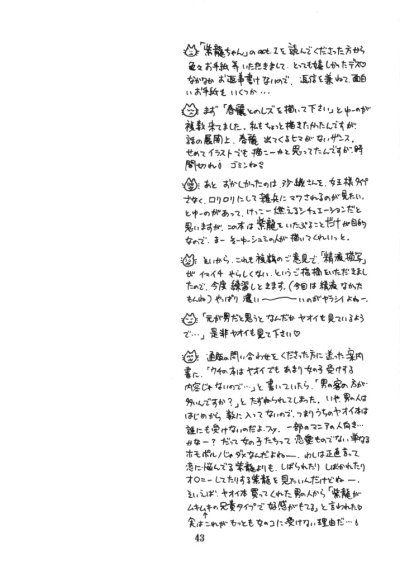 「紫龍ちゃん」の∞もLZを読んでくださった方から
色々お手紙等いただきまして、とっても嬉しかったデス♡
なかなかお返事書けないので、返信を兼ねて面白
いお手紙をいくつか…
まず「春麗とのレズを描いて下さい」とゆーのが
複数来てました。私もちょっと描きたかったんですが、
話の展開上、春麗出てくるヒマがないザンス。
せめてイラストでも描こーかと思ってたんですが、時
間切れ! ゴミンねさ
あとおかしかったのは沙織さんを、女王様タイプ
さなく、ロリロリたして雑兵にマワされるのが見たい。
とゆーのがあって、けっこー燃えるシチュエーションだと
思いますが、この本は紫龍をいたぶることだけが目的
なので、まーそーゆーシュミの人が描いてくれいっと。
といいから、これも複数のご意見で「精液描写」
がイマイチやらしくない、というご指摘をいただきまし
たので、今度練習しときます。(今回は精液なかた
もんね)やっぱり濃い〜〜〜いのがヤラシイよねー。
「元が男だと思うとなんだかヤオイも見ているよう
で…」是非ヤオイも見て下さい♡
通販の問い合わせをくださった方に送った案内
書に、「ウチの本はヤオイでもあまり女の子受けする
内容じゃないので…」と書いていたら、「男の客の方が
多いんですか?」とたずねられてしまった。いや男の人は
はじめから数に入ってないので、つまりうちのヤオイ本は
誰にも受けないのだよ。フッ、一部のマニアの人向き…
かなー? だって女の子たちって恋愛ものでない単なる
ホモポルノじゃダメなんだよねー、わしは正直言って
恋に悩んでる紫龍よりも、しばられたりしばかれたり
オ○ニーしてたりする紫龍を見たいんだけどねー。
といえば、ヤオイ本買ってくれた男の人から「紫龍が
ムキムキの兄貴タイプで好感がもてる」と言われた♡
実はこれがもっとも女のコに受けない理由だ…!
43